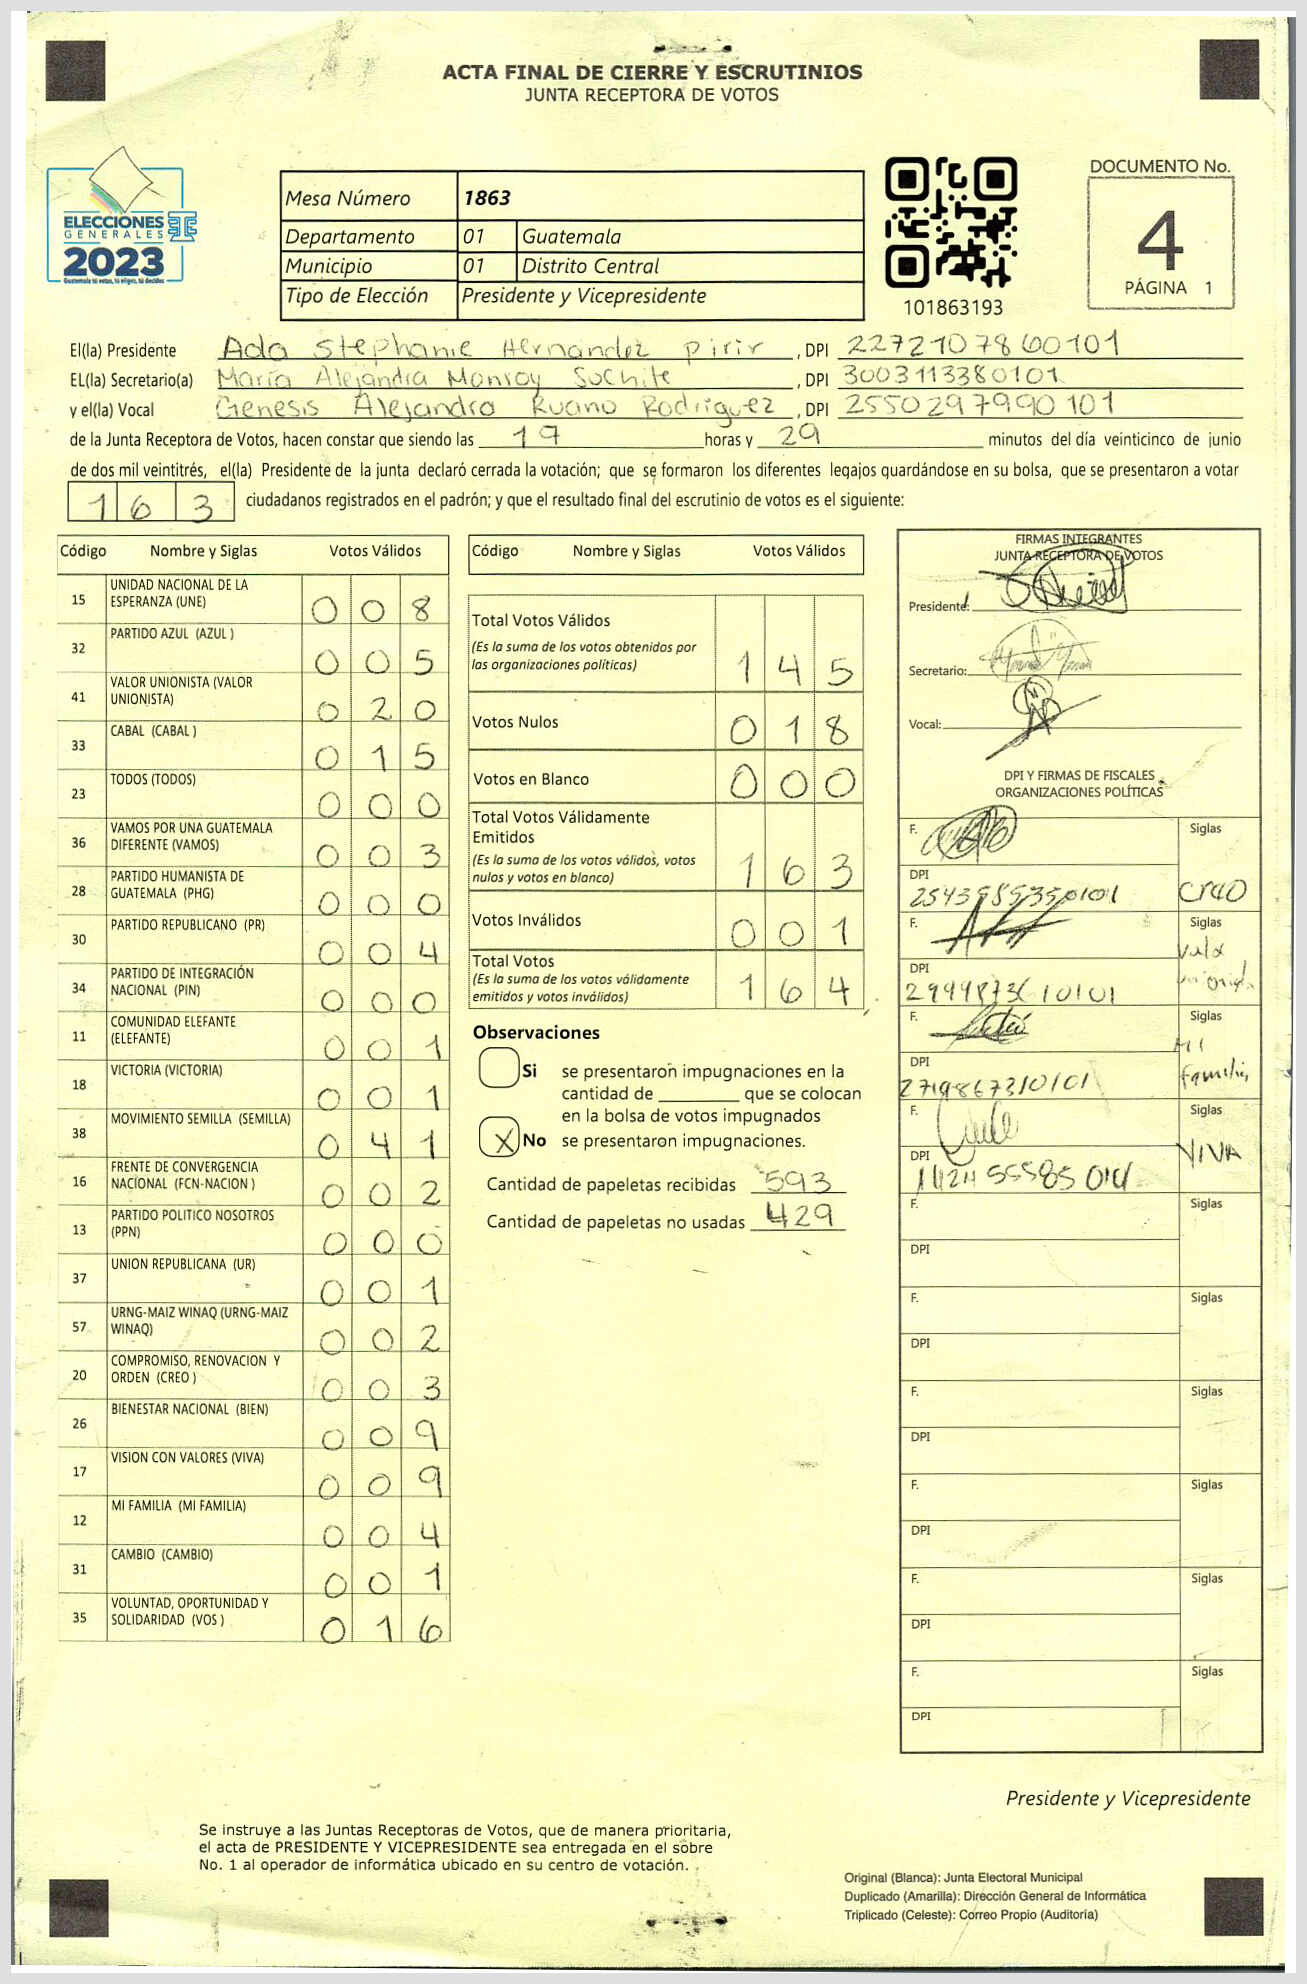 ACTA FINAL DE CIERRE Y ESCRUTINIOS
JUNTA RECEPTORA DE VOTOS
ELECCIONES
GENERALES
2023
Guatemala tú votas, tú eliges, tú decides
Mesa Número 1863
Departamento 01 Guatemala
Municipio 01 Distrito Central
Tipo de Elección Presidente y Vicepresidente
101863193
DOCUMENTO No.
4
PÁGINA 1
El(la) Presidente Ada Stephanie Hernández Pirir , DPI 2272107860101
EL(la) Secretario(a) María Alejandra Monroy Suchite , DPI 3003113380101
y el(la) Vocal Genesis Alejandro Ruano Rodriguez , DPI 2550297990101
de la Junta Receptora de Votos, hacen constar que siendo las 19 horas y 29 minutos del día veinticinco de junio
de dos mil veintitrés, el(la) Presidente de la junta declaró cerrada la votación; que se formaron los diferentes legajos guardándose en su bolsa, que se presentaron a votar
163 ciudadanos registrados en el padrón; y que el resultado final del escrutinio de votos es el siguiente:
Código Nombre y Siglas Votos Válidos
15 UNIDAD NACIONAL DE LA
ESPERANZA (UNE) 008
32 PARTIDO AZUL (AZUL ) 005
41 VALOR UNIONISTA (VALOR
UNIONISTA) 020
33 CABAL (CABAL ) 015
23 TODOS (TODOS) 000
36 VAMOS POR UNA GUATEMALA
DIFERENTE (VAMOS) 003
28 PARTIDO HUMANISTA DE
GUATEMALA (PHG) 000
30 PARTIDO REPUBLICANO (PR) 004
34 PARTIDO DE INTEGRACIÓN
NACIONAL (PIN) 000
11 COMUNIDAD ELEFANTE
(ELEFANTE) 001
18 VICTORIA (VICTORIA) 001
38 MOVIMIENTO SEMILLA (SEMILLA) 041
16 FRENTE DE CONVERGENCIA
NACIONAL (FCN-NACION ) 002
13 PARTIDO POLITICO NOSOTROS
(PPN) 000
37 UNION REPUBLICANA (UR) 001
57 URNG-MAIZ WINAQ (URNG-MAIZ
WINAQ) 002
20 COMPROMISO, RENOVACION Y
ORDEN (CREO ) 003
26 BIENESTAR NACIONAL (BIEN) 009
17 VISION CON VALORES (VIVA) 009
12 MI FAMILIA (MI FAMILIA) 004
31 CAMBIO (CAMBIO) 001
35 VOLUNTAD, OPORTUNIDAD Y
SOLIDARIDAD (VOS ) 016
Código Nombre y Siglas Votos Válidos
Total Votos Válidos
(Es la suma de los votos obtenidos por
las organizaciones políticas) 145
Votos Nulos 018
Votos en Blanco 000
Total Votos Válidamente
Emitidos
(Es la suma de los votos válidos, votos
nulos y votos en blanco) 163
Votos Inválidos 001
Total Votos
(Es la suma de los votos válidamente
emitidos y votos inválidos) 164
Observaciones
Si se presentaron impugnaciones en la
cantidad de ________ que se colocan
en la bolsa de votos impugnados
X No se presentaron impugnaciones.
Cantidad de papeletas recibidas 593
Cantidad de papeletas no usadas 429
FIRMAS INTEGRANTES
JUNTA RECEPTORA DE VOTOS
Presidente:
Secretario:
Vocal:
DPI Y FIRMAS DE FISCALES
ORGANIZACIONES POLÍTICAS
F. Siglas
DPI
creo
F. Siglas
DPI
F. Siglas
DPI
2719867310101
Mi
familia
F. Siglas
DPI
VIVA
F. Siglas
DPI
F. Siglas
DPI
F. Siglas
DPI
F. Siglas
DPI
F. Siglas
DPI
F. Siglas
DPI
Presidente y Vicepresidente
Se instruye a las Juntas Receptoras de Votos, que de manera prioritaria,
el acta de PRESIDENTE Y VICEPRESIDENTE sea entregada en el sobre
No. 1 al operador de informática ubicado en su centro de votación.
Original (Blanca): Junta Electoral Municipal
Duplicado (Amarilla): Dirección General de Informática
Triplicado (Celeste): Correo Propio (Auditoría)